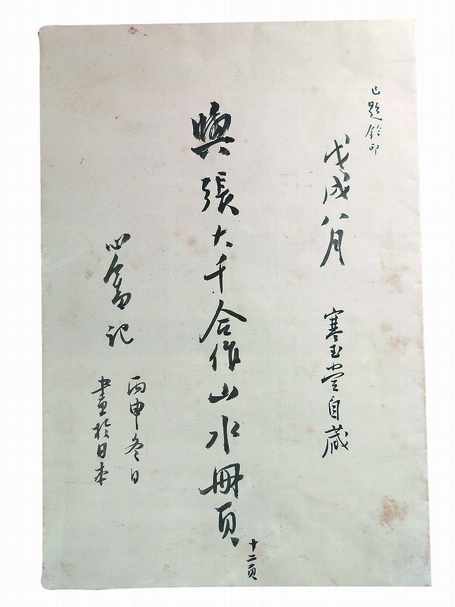 已題鈐印
戊戌八月 寒玉堂自藏
與張大千合作山水冊頁 十二頁
心畬記
丙申冬日
畫於日本